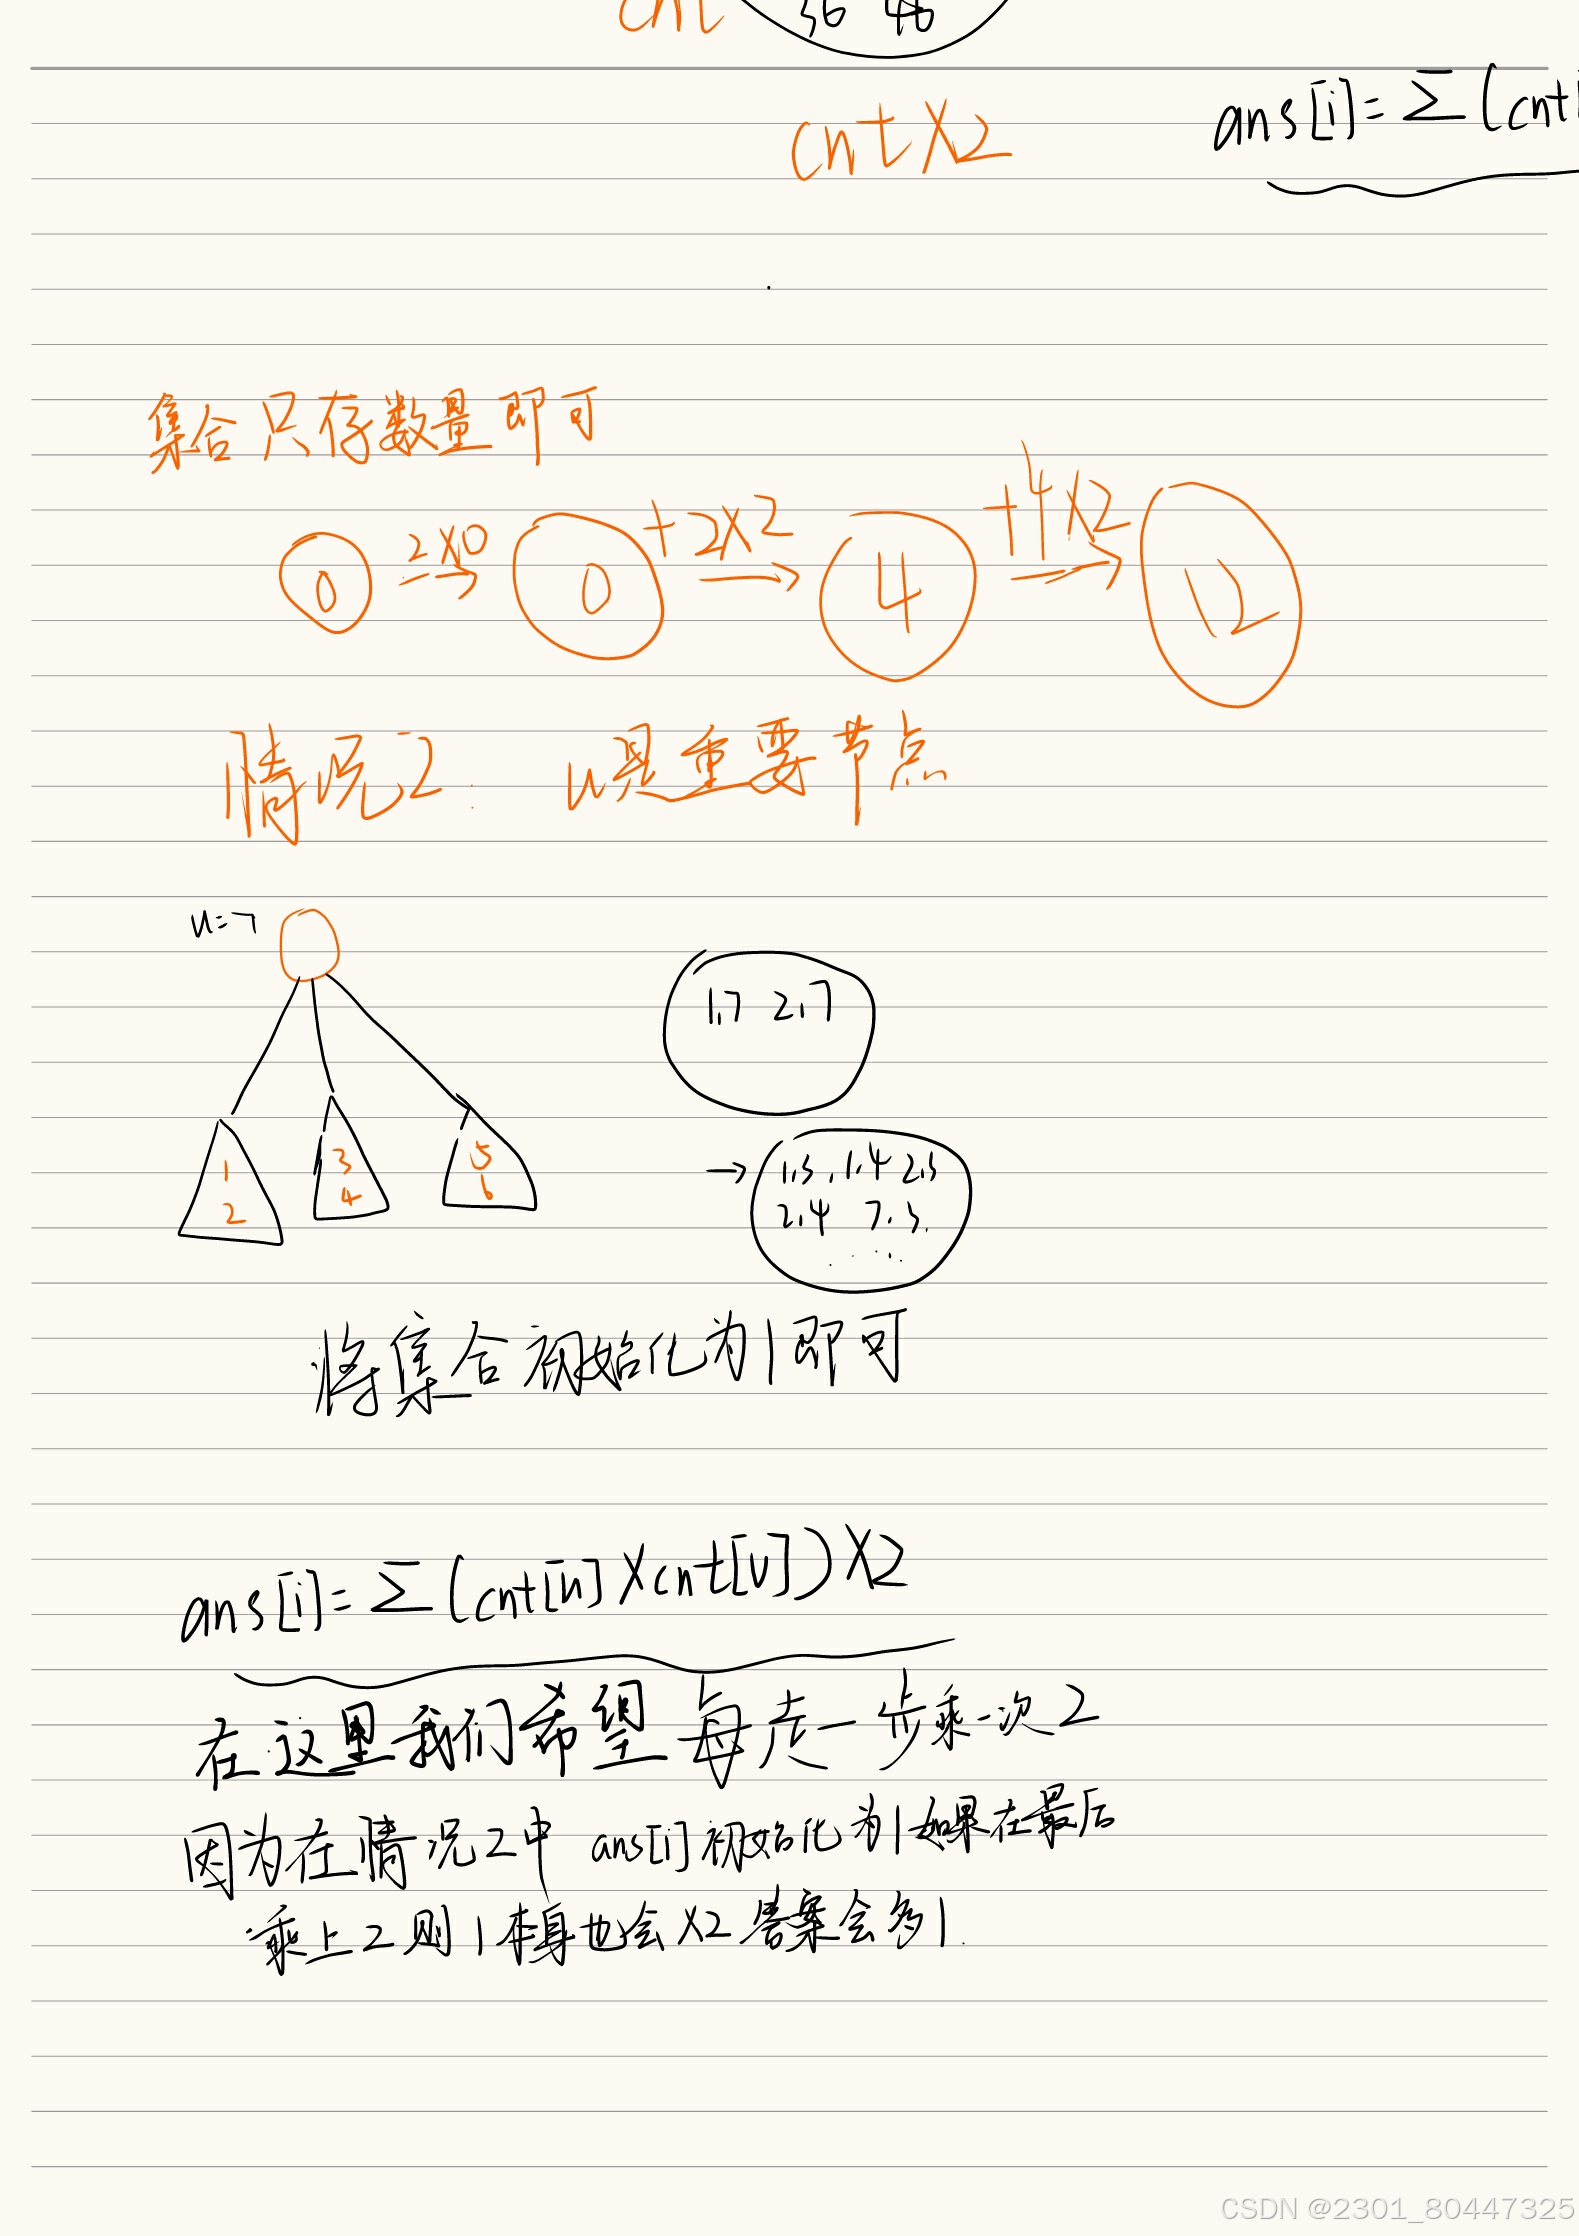 cnt 36 46
ans[i]=Σ(cnt[
cnt×2
集合只存数量即可
0 2×0 0 +2×2 4 +4×2 12
情况2: u是重要节点
u=7
1,7 2,7
1 2
3 4
5 6
→ 1,3, 1,4 2,3
2,4 7,3.
......
将集合初始化为1即可
ans[i]=Σ(cnt[u]×cnt[v])×2
在这里我们希望每走一步乘一次2
因为在情况2中 ans[i]初始化为1如果在最后
乘上2则1本身也会×2答案会多1.
CSDN @2301_80447325